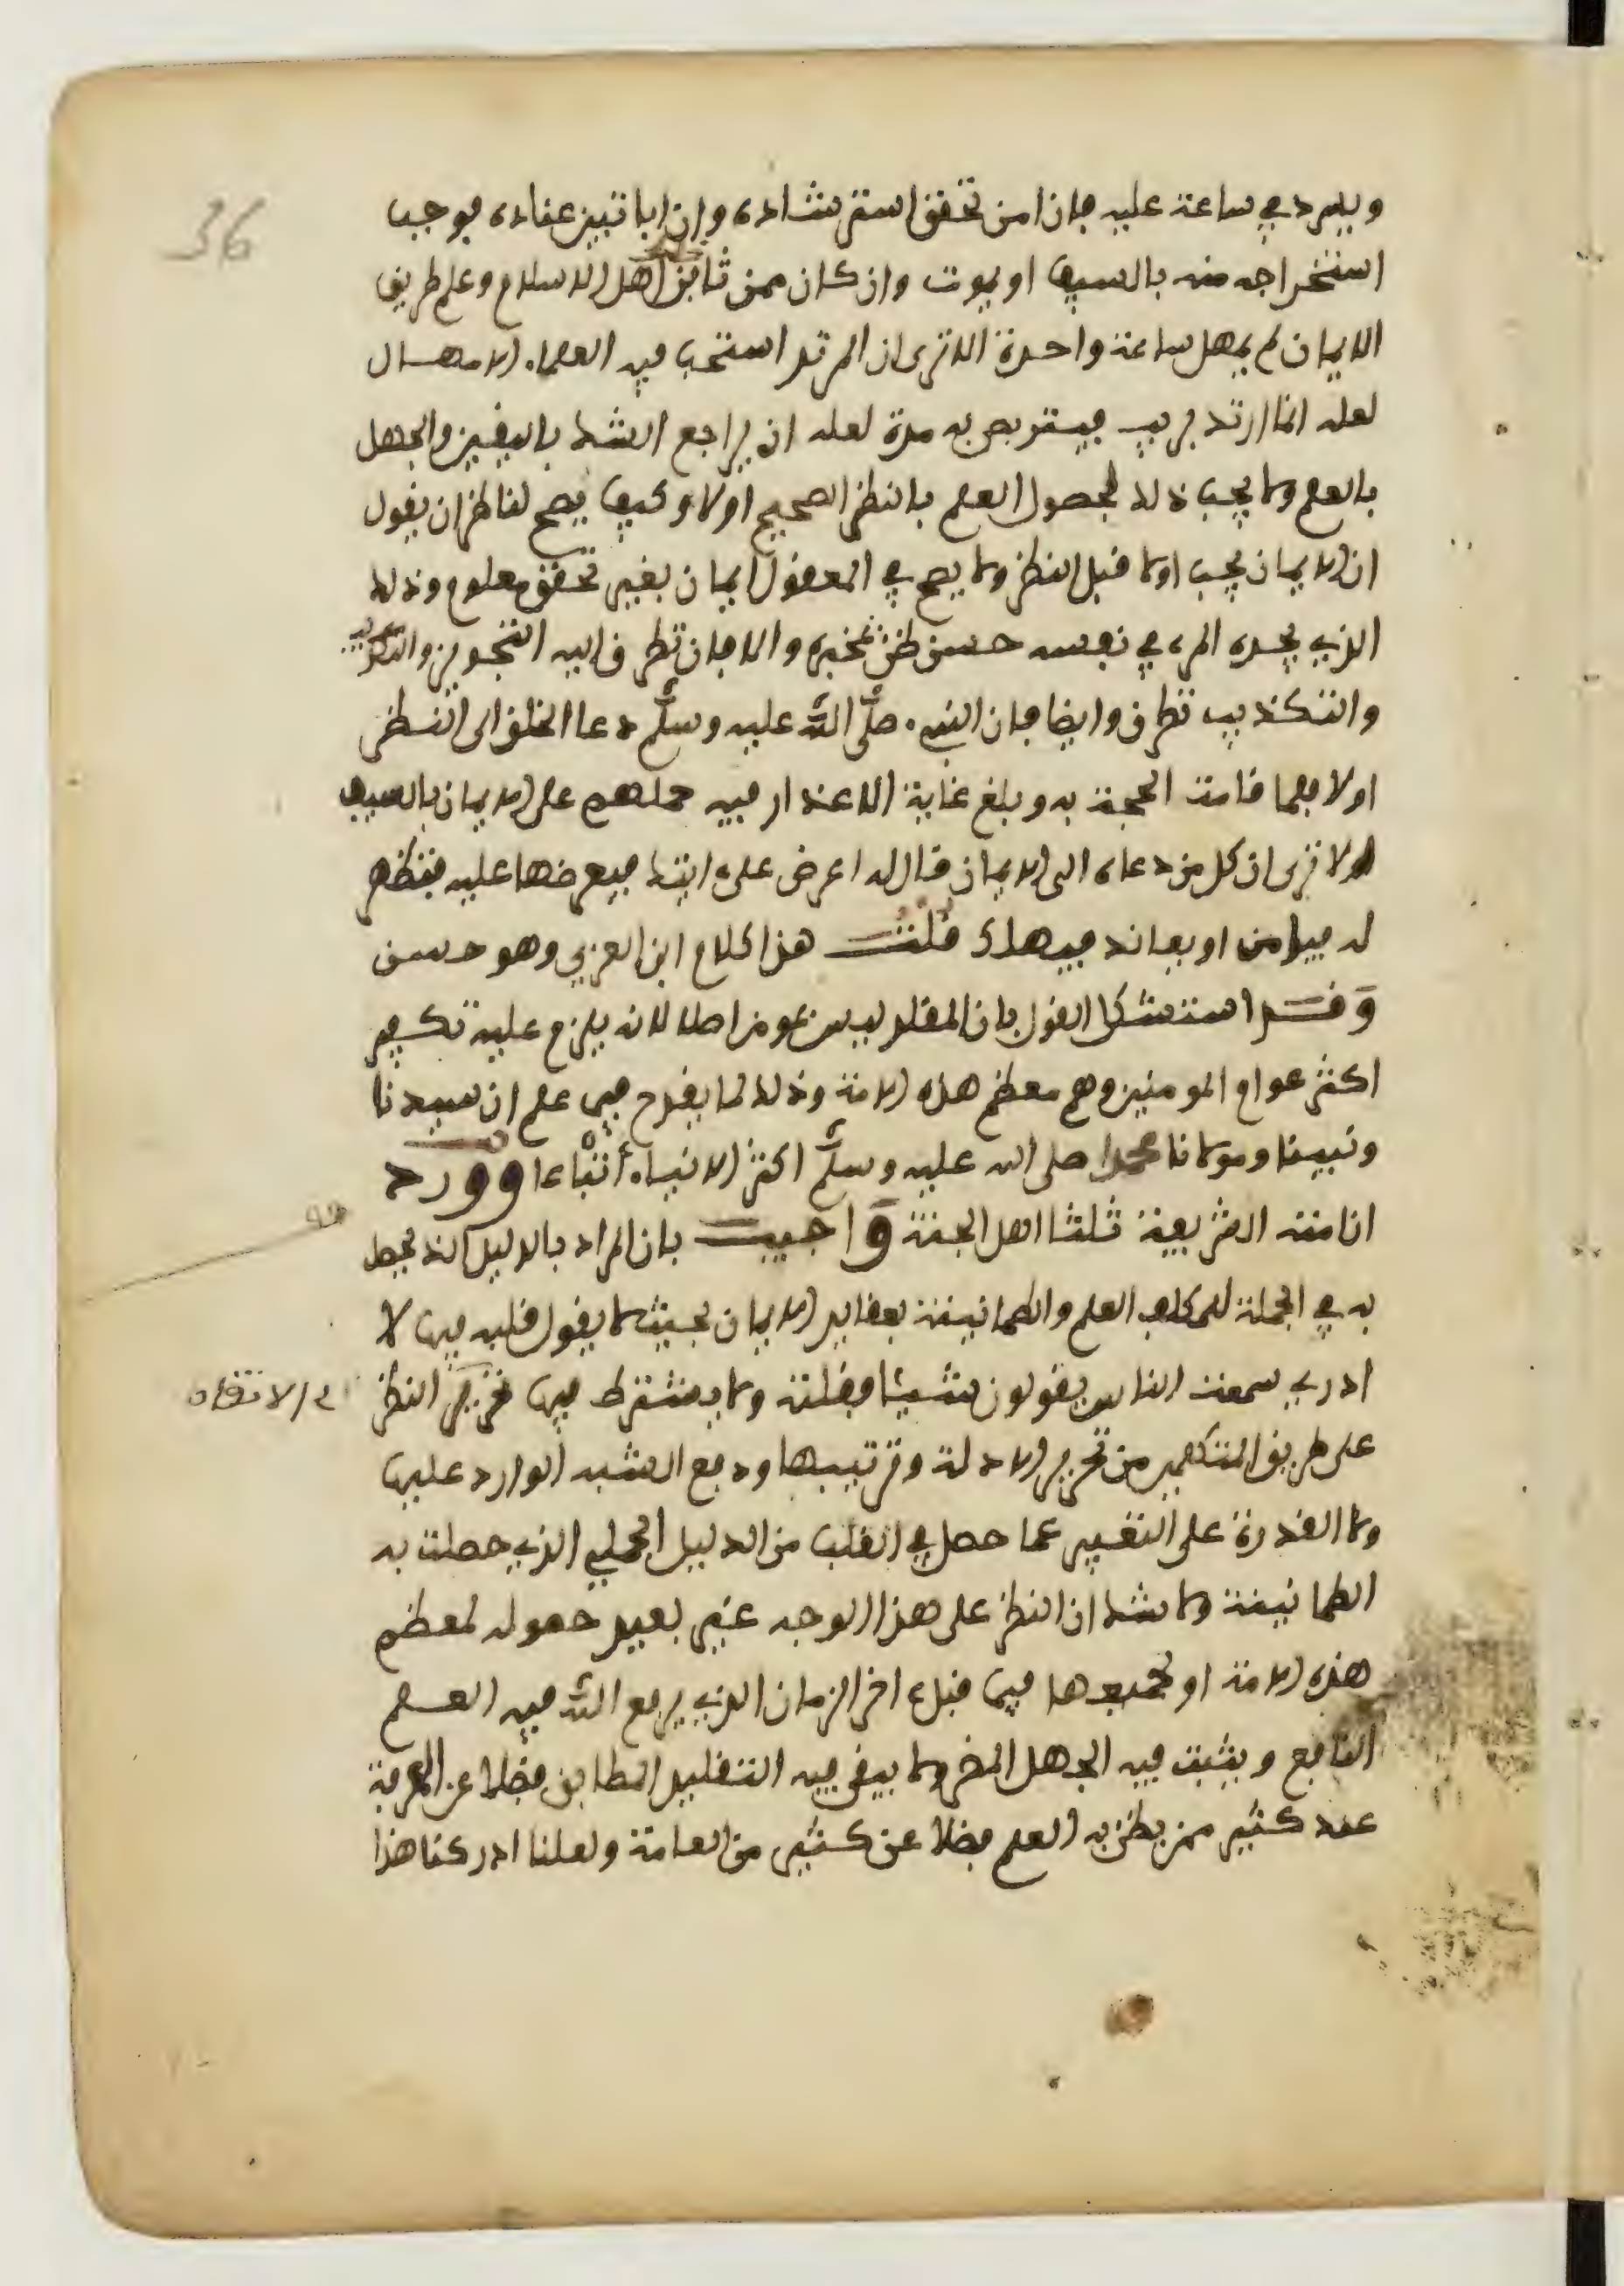 36
ويسرد في ساعة عليه فإن امن تحقق استرشاده وإن ابا تبين عناده فوجب
استخراجه منه بالسيف او يموت وان كان ممن ثافن اهل الاسلام وعلم طريق
الايمان لم يمهل ساعة واحدة الا ترى ان المرتد استحب فيه العلماء الامهال
لعله انما ارتد لريب فيتربص به مدة لعله ان يراجع الشك باليقين والجهل
بالعلم ولا يجب ذلك لحصول العلم بالنظر الصحيح اولا وكيف يصح لناظر ان يقول
ان الايمان يجب اولا قبل النظر ولا يصح في المعقول ايمان بغير تحقق معلوم وذلك
الذي يجده المرء في نفسه حسن ظن بمخبره والا فان تطرق اليه التجويز والتكذيب
والتكذيب تطرق وايضا فان النبي صلى الله عليه وسلم دعا الخلق الى النظر
اولا فلما قامت الحجة به وبلغ غاية الاعذار فيه حملهم على الايمان بالسيف
اولا ترى ان كل من دعاه الى الايمان قال له اعرض علي ايتك فيعرضها عليه فتظهر
له فيامن او يعاند فيهلك قلت هذا كلام ابن العربي وهو حسن
وقد استشكل القول بان المقلد ليس بمومن اصلا لانه يلزم عليه تكفير
اكثر عوام المومنين وهم معظم هذه الامة وذلك لما يقدح فيما علم ان سيدنا
ونبينا ومولانا محمدا صلى الله عليه وسلم اكثر الانبياء أتباعا وورد
ان امته الشريفة ثلثا اهل الجنة واجيب بان المراد بالدليل الذي يحصل
به في الجملة للمكلف العلم والطمانينة بعقايد الايمان بحيث لا يقول قلبه فيها لا
ادري سمعت الناس يقولون شيئا فقلته ولا يشترط فيها تحرير النظر
على طريق المتكلمين من تحرير الادلة وترتيبها ودفع الشبه الواردة عليها
ولا القدرة على التعبير عما حصل في القلب من الدليل الجملي الذي حصلت به
الطمانينة ولا شك ان النظر على هذا الوجه غير بعيد حصوله لمعظم
هذه الامة او لجميعها فيما قبل اخر الزمان الذي يرفع الله فيه العلم
النافع ويثبت فيه الجهل المضر ولا يبقى فيه التقليد المطابق فضلا عن المعرفة
عند كثير ممن يظن به العلم فضلا عن كثير من العامة ولعلنا ادركنا هذا